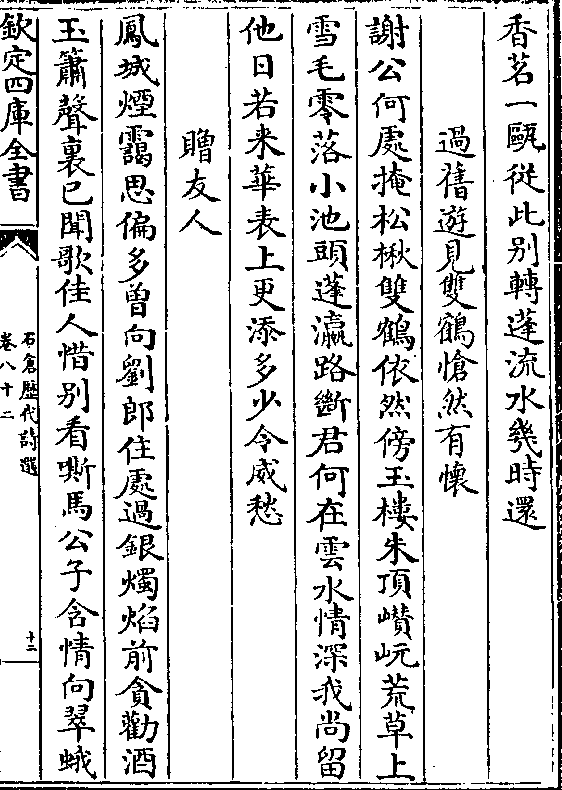 香茗一甌從此别轉蓬流水幾時還
過舊遊見雙鶴愴然有懷
謝公何處掩松楸雙鶴依然傍玉樓朱頂巑岏荒草上
雪毛零落小池頭蓬瀛路斷君何在雲水情深我尚留
他日若来華表上更添多少令威愁
贈友人
鳳城煙靄思偏多曾向劉郎住處過銀燭焰前貪勸酒
玉簫聲裏已聞歌佳人惜别看嘶馬公子含情向翠蛾
欽定四庫全書
石倉歷代詩選
卷八十二
十二